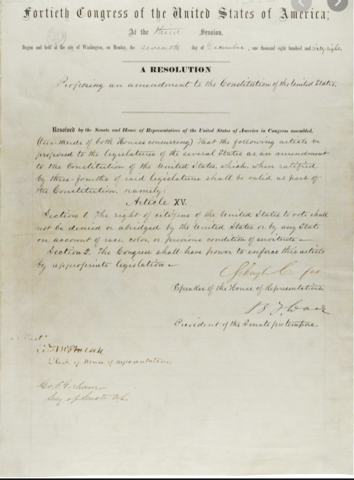 Fortieth Congress of the United States of America;
At the third Session,
Begun and held at the city of Washington, on Monday, the seventh day of December, one thousand eight hundred and sixty-eight.
A RESOLUTION
Proposing an amendment to the Constitution of the United States.
Resolved by the Senate and House of Representatives of the United States of America in Congress assembled,
(two-thirds of both Houses concurring) That the following article be
proposed to the legislatures of the several States as an amendment
to the Constitution of the United States, which, when ratified
by three-fourths of said legislatures shall be valid as part of
the Constitution, namely:
Article XV.
Section 1. The right of citizens of the United States to vote shall
not be denied or abridged by the United States or by any State
on account of race, color, or previous condition of servitude—
Section 2. The Congress shall have power to enforce this article
by appropriate legislation—
Schuyler Colfax
Speaker of the House of Representatives
B. F. Wade
President of the Senate pro tempore.
Attest:
Clerk of House of representatives
Geo. C. Gorham
Secy of Senate U.S.